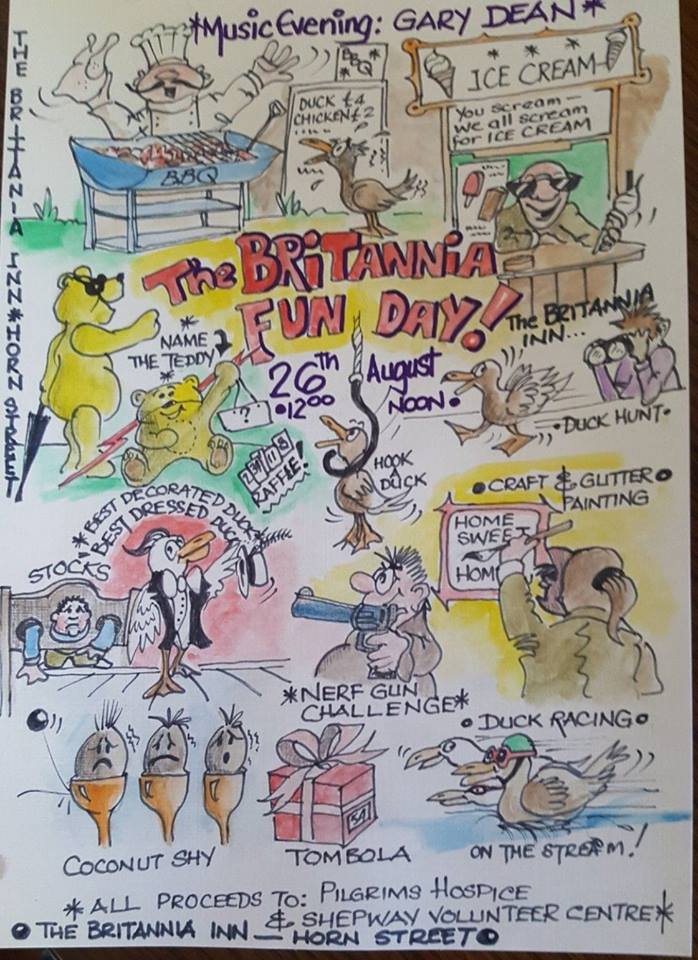 *Music Evening: GARY DEAN*
THE BRITANIA INN*HORN STREET
BBQ
DUCK £4
CHICKEN £2
BBQ
ICE CREAM
You scream—
we all scream
for ICE CREAM
The BRITANNIA
FUN DAY!
*
NAME
THE TEDDY
*
?
26TH August
•12oo NOON•
The BRITANNIA
INN...
•DUCK HUNT•
HOOK
A
DUCK
RAFFLE!
•CRAFT & GLITTER•
PAINTING
HOME
SWEET
HOM
*BEST DECORATED DUCK*
*BEST DRESSED DUCK*
STOCKS
*NERF GUN
CHALLENGE*
COCONUT SHY
TOMBOLA
•DUCK RACING•
ON THE STREAM!
*ALL PROCEEDS TO: PILGRIMS HOSPICE
& SHEPWAY VOLLUNTEER CENTRE*
•THE BRITANNIA INN — HORN STREET•